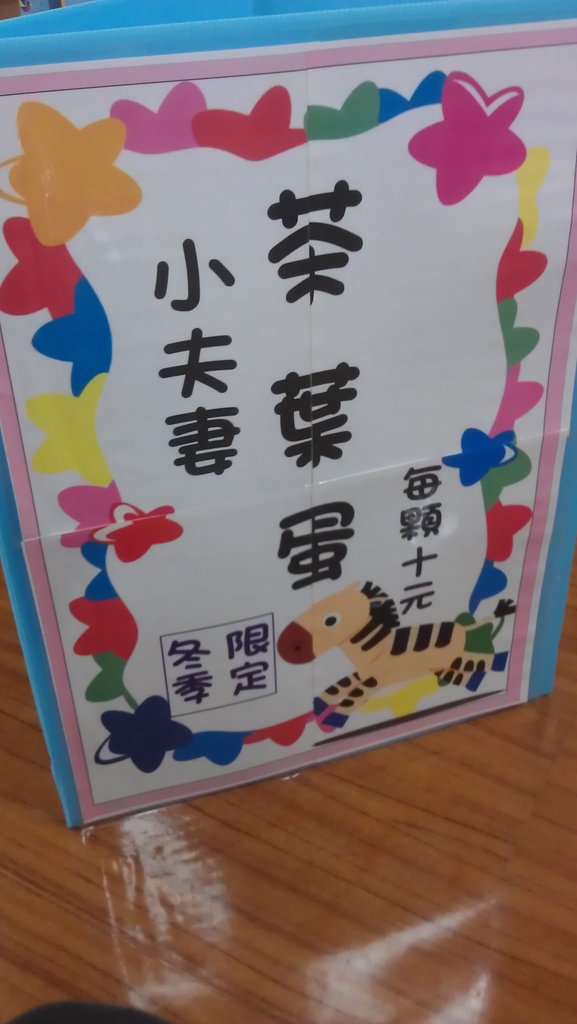 每顆十元
茶葉蛋
小夫妻
限定
冬季